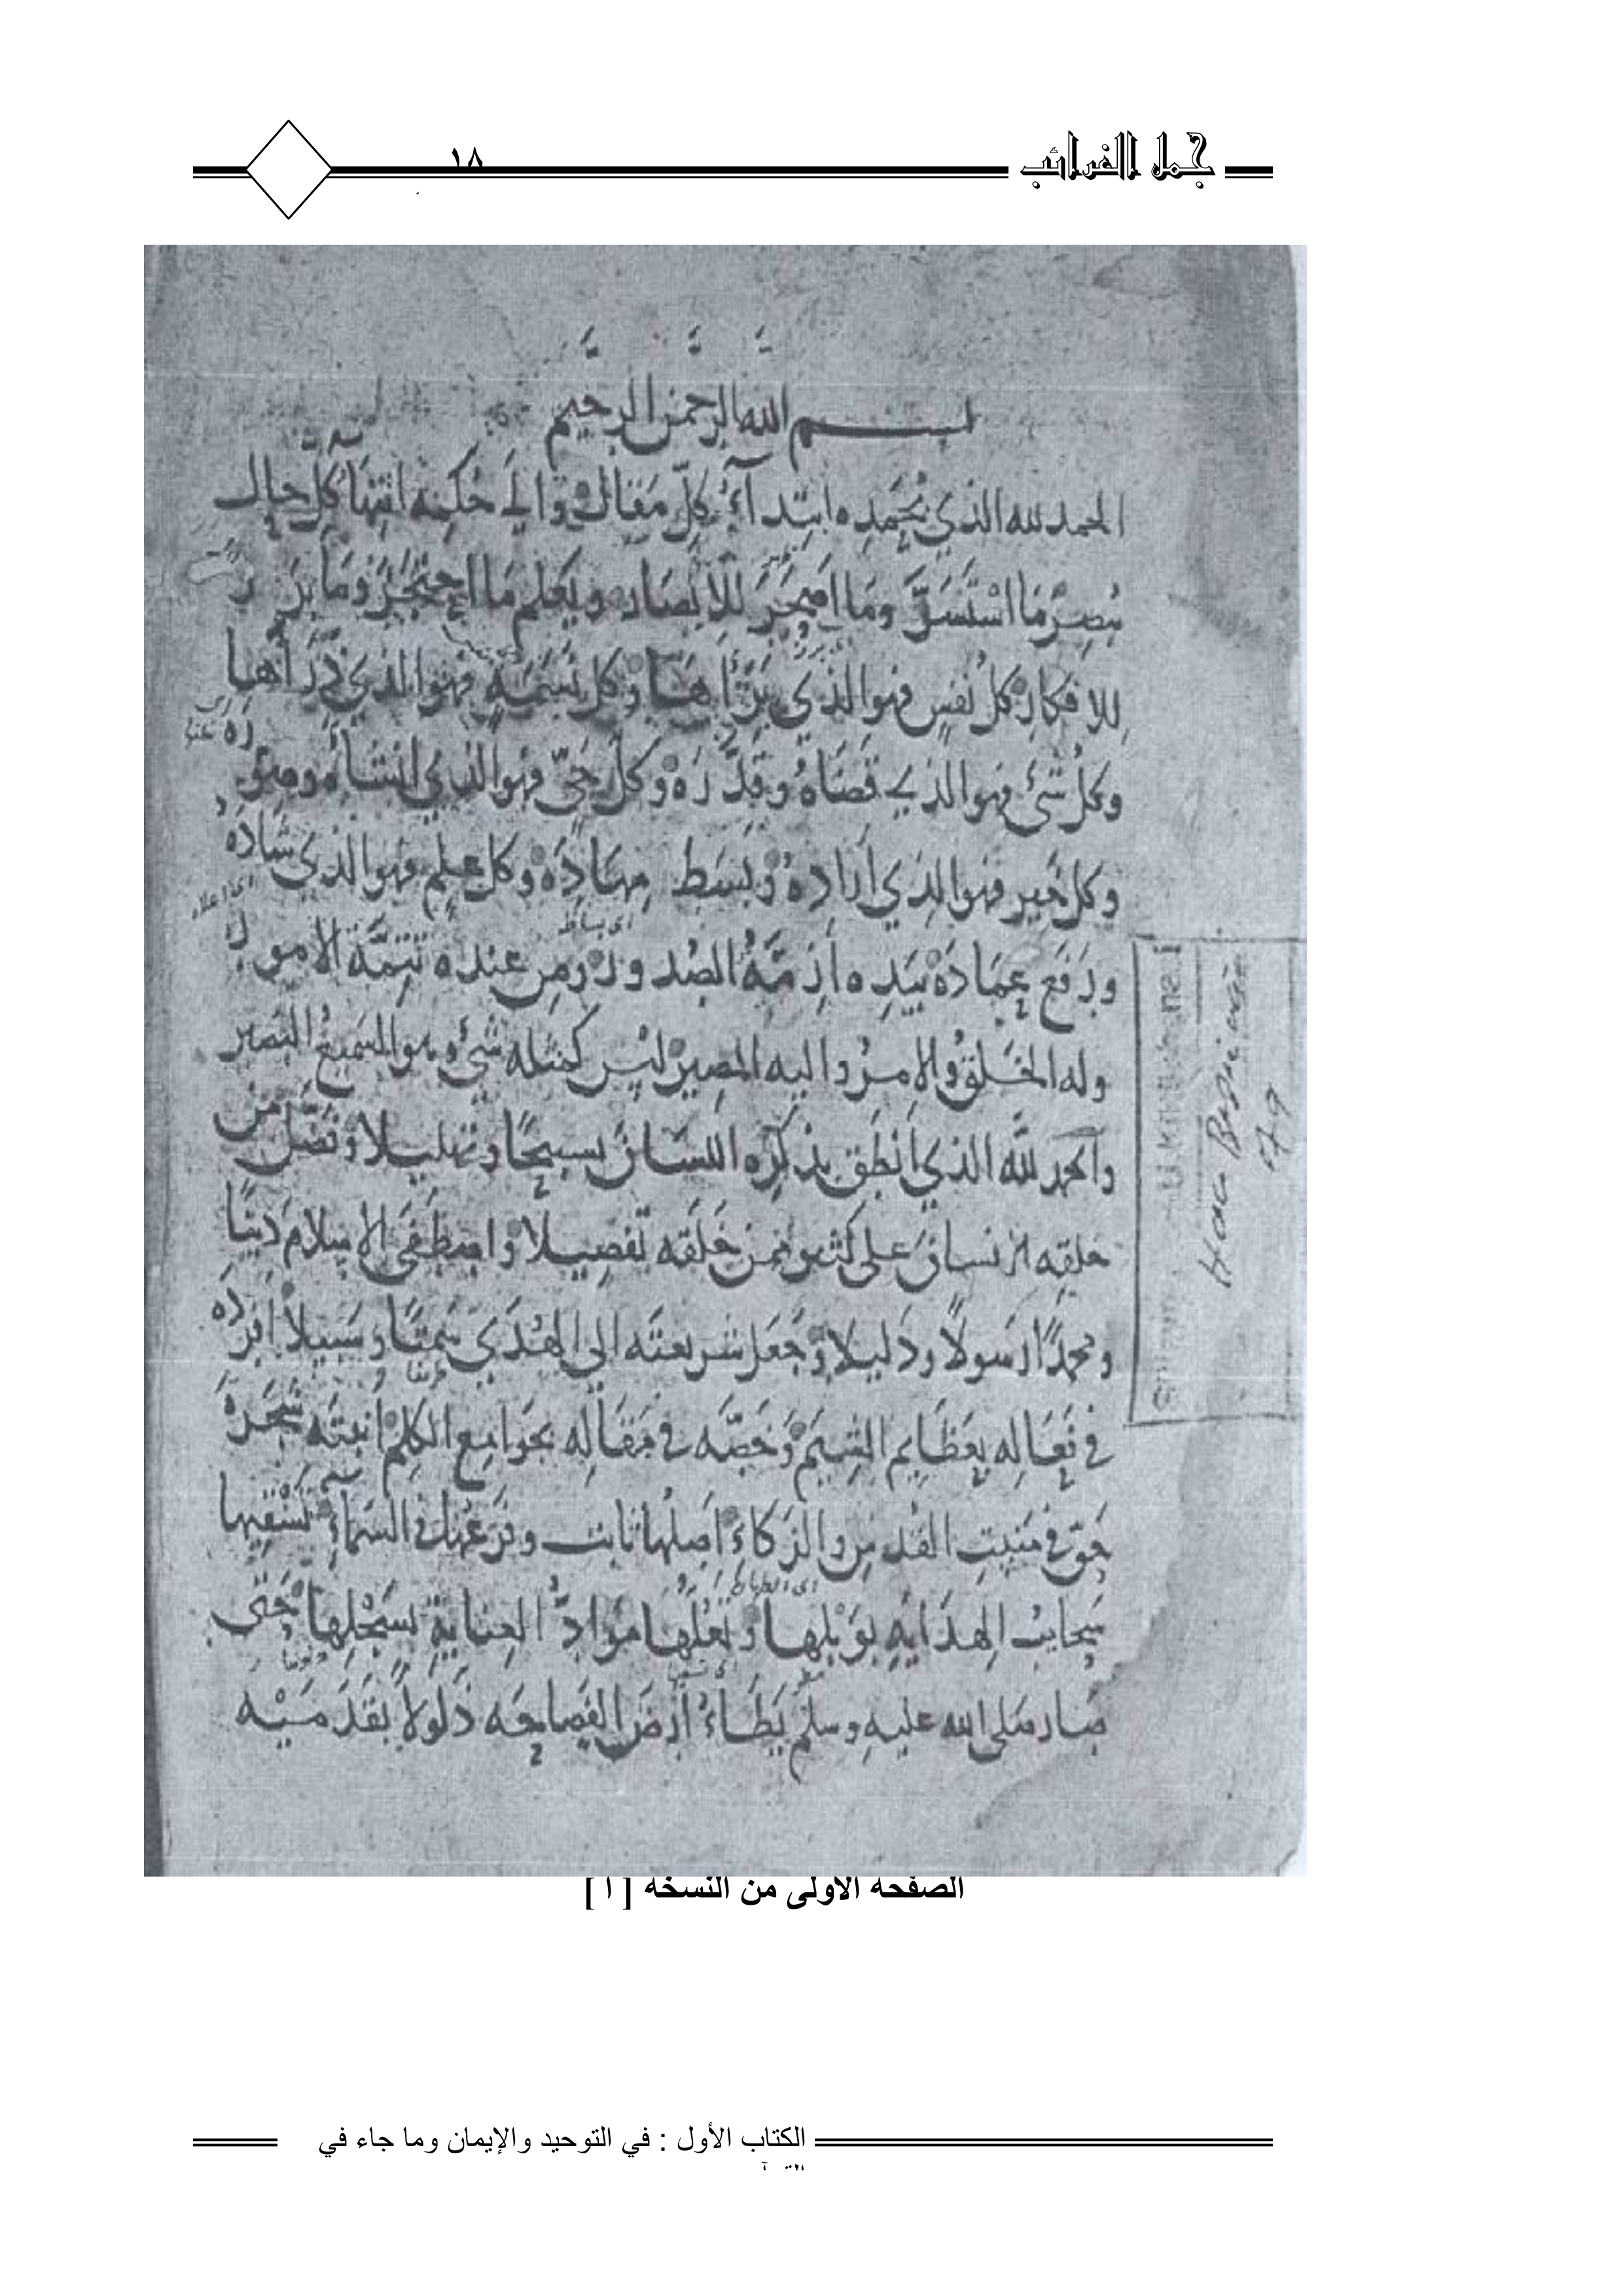 جمل الغرائب
١٨
بسم الله الرحمن الرحيم
الحمد لله الذي بحمده ابتداء كل مقال والى حكمه انتهاء كل حال
ما استسر وما للابصار ويعلم ما وما برز
للافكار كل نفس فهو الذي برأها وكل نسمة فهو الذي ذرأها
وكل شئ فهو الذي قضاه وقدره وكل حي فهو الذي انشأه وصوره
وكل خير فهو الذي أراده وبسط مهاده وكل علم فهو الذي شاده
اى بساط
ورفع عماده بيده أزمة ومن عنده تتمة الامور
وله الخلق والامر واليه المصير ليس كمثله شئ وهو السميع البصير
والحمد لله الذي أنطق بذكره اللسان تسبيحا وتهليلا وفضل من
خلقه الانسان على كثير ممن خلقه تفصيلا واصطفى الاسلام دينا
ومحمدا رسولا ودليلا وجعل شريعته الى الهدى سمتا وسبيلا افرده
في فعاله بعظايم الشيم وخصه في مقاله بجوامع الكلم انبته شجرة
في منبت القدس والزكاء اصلها ثابت وفرعها في السماء تسقيها
سحايب الهداية بوبلها وتعلها مواد العناية بسجلها حتى
صار صلى الله عليه وسلم يطاء أرض الفصاحه ذلولا بقدميه
الصفحة الأولى من النسخة [ أ ]
الكتاب الأول : في التوحيد والإيمان وما جاء في